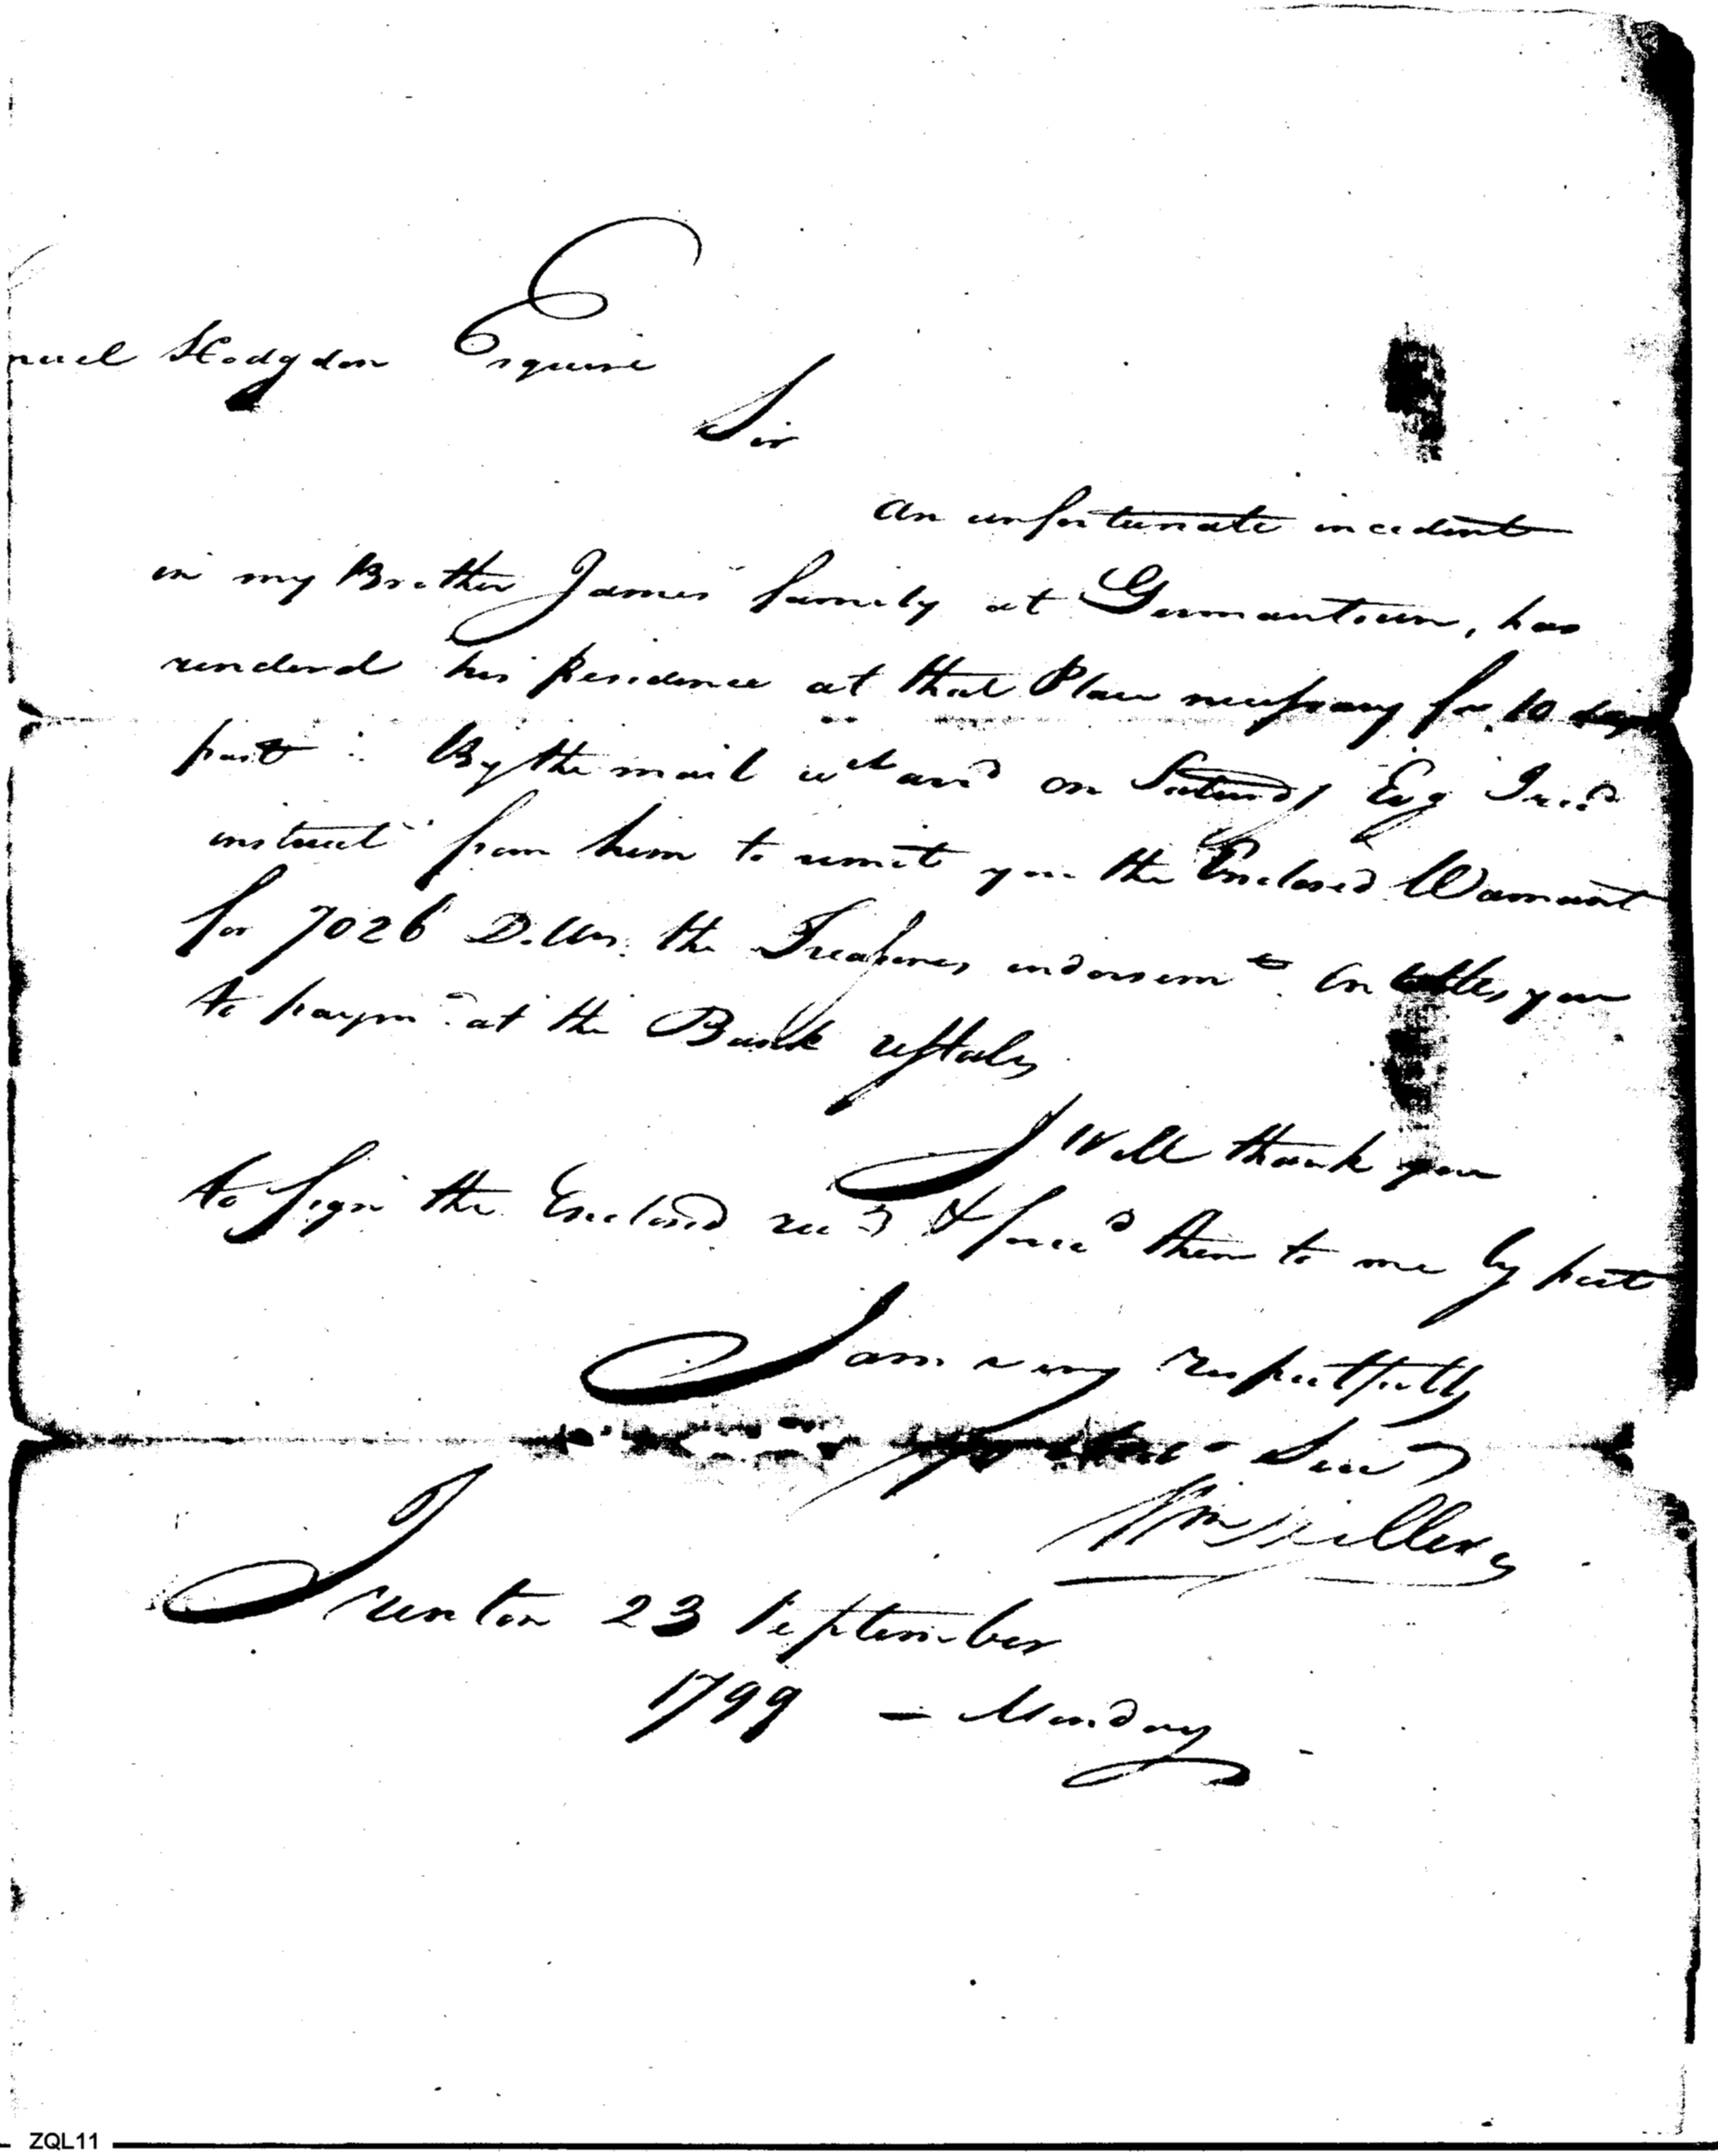 nuel Hodgdon Esquire
Sir
An unfortunate incedent
in my Brother James' family at Germantown, has
renderd his residence at that Place necessary for 10 days
past : By the mail wch arrd on Saturdy Evg I recd
instruct from him to remit you the Enclosed Warrant
for 7026 Dollrs. the Treasurers endorsemt Entitles you
to paymt at the Bank
I Will thank you
to sign the Enclosed rects & forwd them to me by post
I am very respectfully
Servt
Wm Miller
Trenton 23 September
1799 — Monday
ZQL11